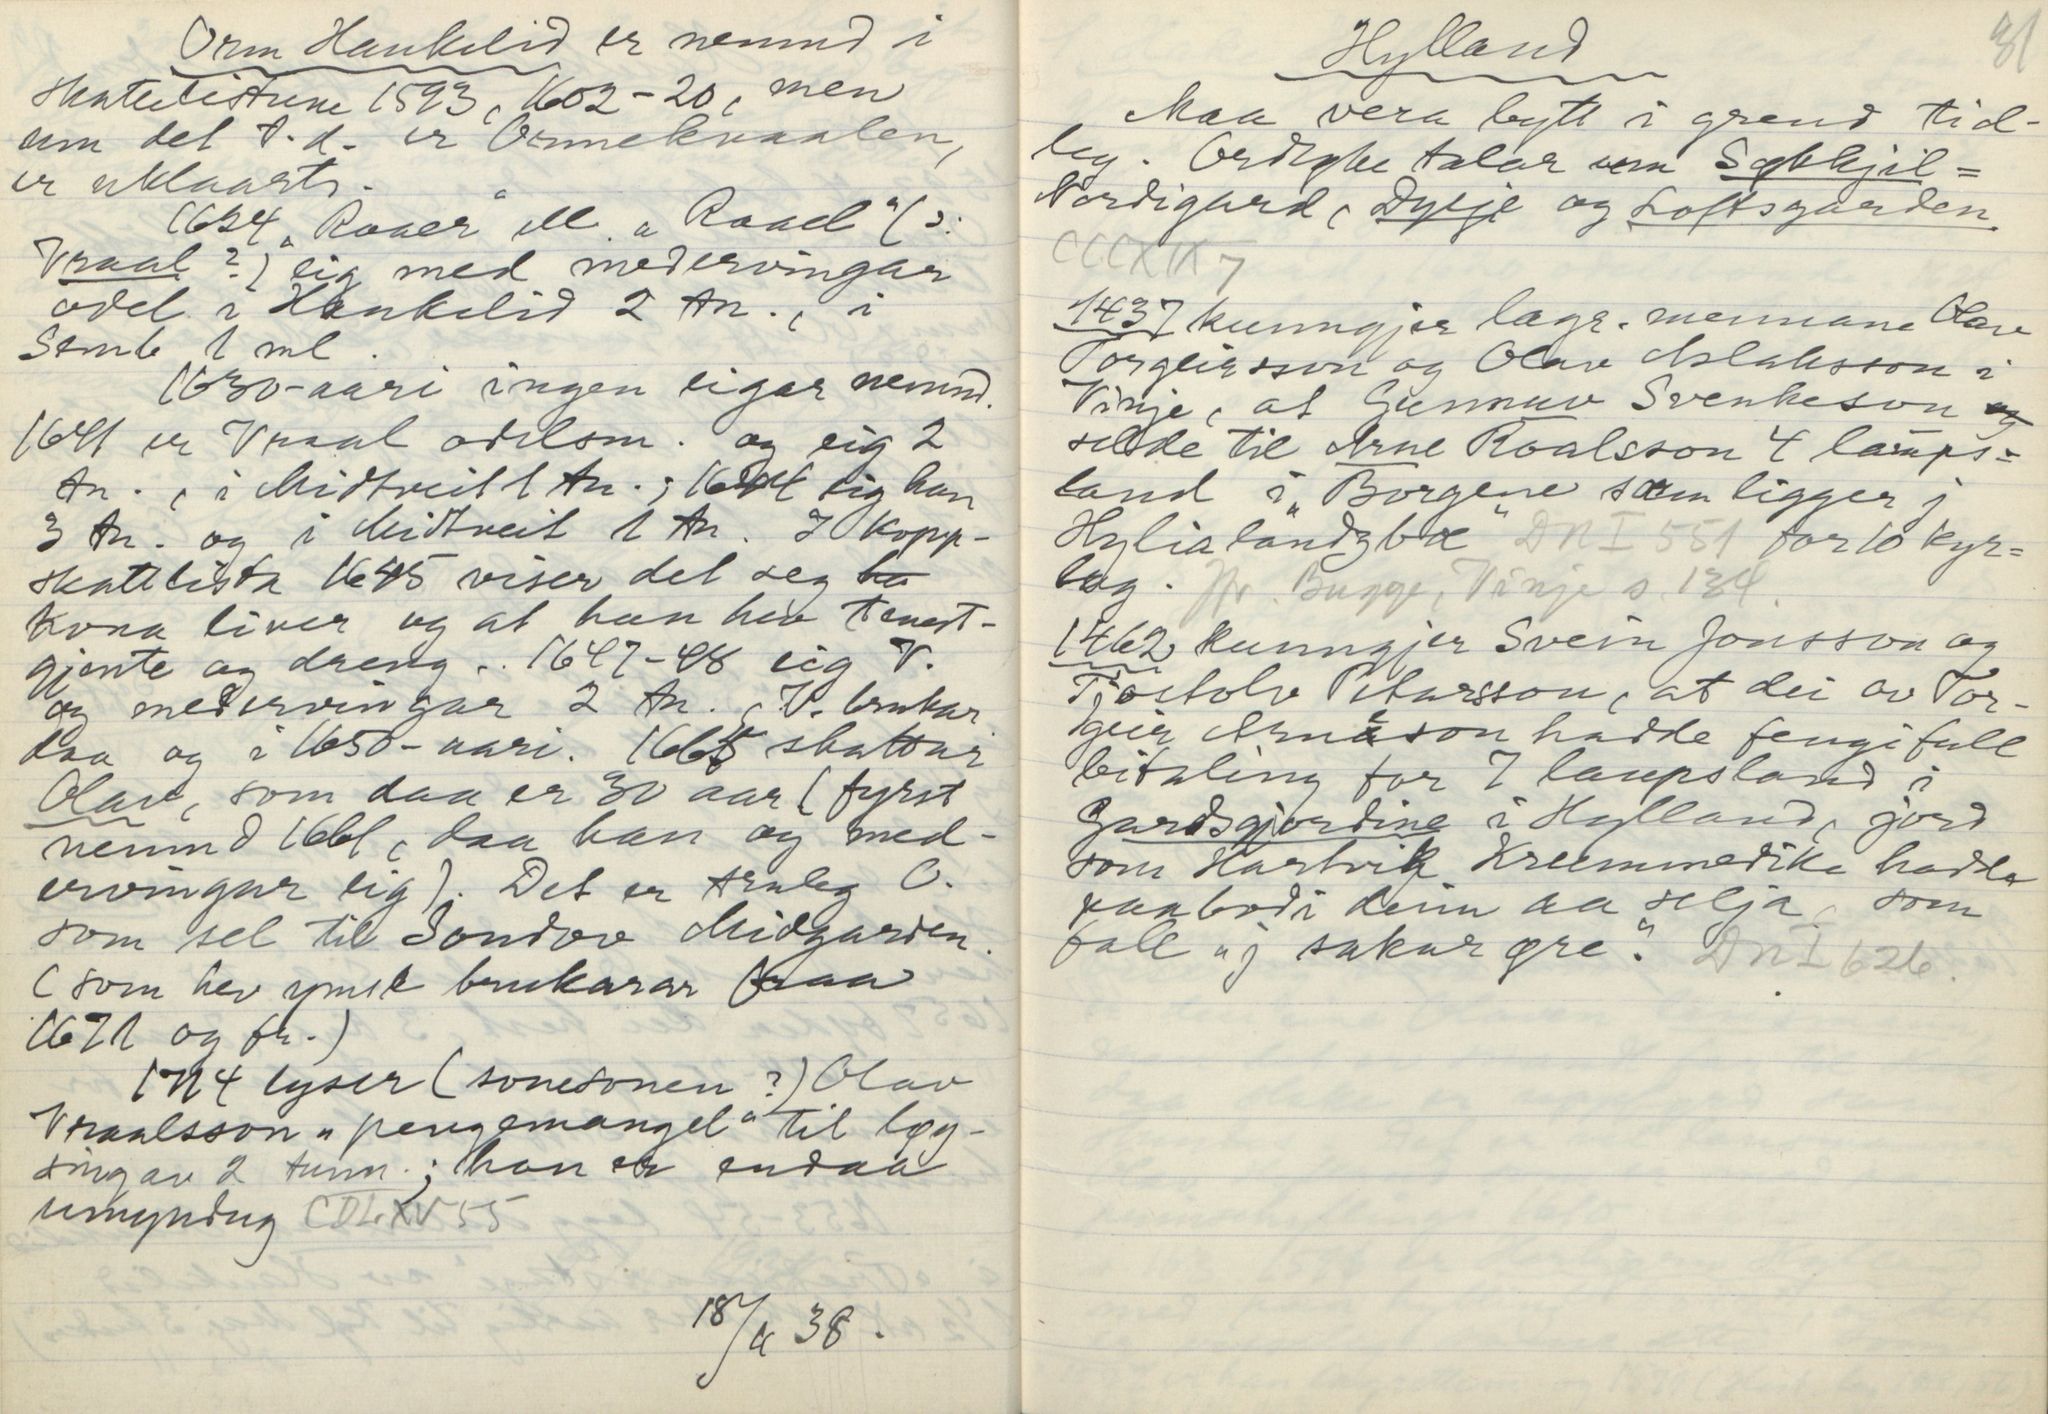 Orm Haukelid er nemnd i
skattelistune 1593, 1602-20, men
um det t.d. er Ormekvaalen,
er uklaart.
1624 „Roaer" ell. „Raael" (ɔ:
Vraal?) eig med medervingar
odel i Haukelid 2 tn., i
Semb 1 ml.
1630-aari ingen eigar nemnd.
1641 er Vraal odelsm. og eig 2
tn., i Midtveit 1 tn.; 1644 eig han
3 tn. og i Midtveit 1 tn. I kopp-
skattlista 1645 viser det seg
kona liver og at han hev tenest-
gjente og dreng. 1647-48 eig V.
og medervingar 2 tn., V. brukar
daa og i 1650-aari. 1665 skattar
Olav, som daa er 30 aar (fyrst
nemnd 1661, daa han og med-
ervingar eig). Det er truleg O.
som sel til Sondov Midgarden.
(som hev ymse brukarar fraa
1671 og fr.)
1714 lyser (sonesonen?) Olav
Vraalsson „pengemangel" til løy-
sing av 2 tunn.; han er endaa
umyndug CDLXV 55
18/4 38.
31
Hylland
Maa vera bytt i grend tid-
leg. Ordigbe talar um Sybkjil=
Nordigard, Dyeje og Loftsgarden.
CCCXIX 7
1437 kunngjer lagr. mennane Olav
Torgeirsson og Olav Aslaksson i
Vinje, at Gunnuv Svenkeson og
selde til Arne Roalsson 4 laups=
land i „Borgene" som ligger j
Hylialandzbø DN I 551 for 10 kyr=
lag. Jfr. Bugge, Vinje s. 134.
1462 kunngjer Svein Jonsson og
Tjostolv Petarsson, at dei av Tor-
geir Arneson hadde fengi full
bitaling for 7 laupsland i
Gardsgjordine i Hylland, jord
som Hartvik Krummedike hadde
paabodi deim aa selja, som
fall „j sakar øre". DN I 626.